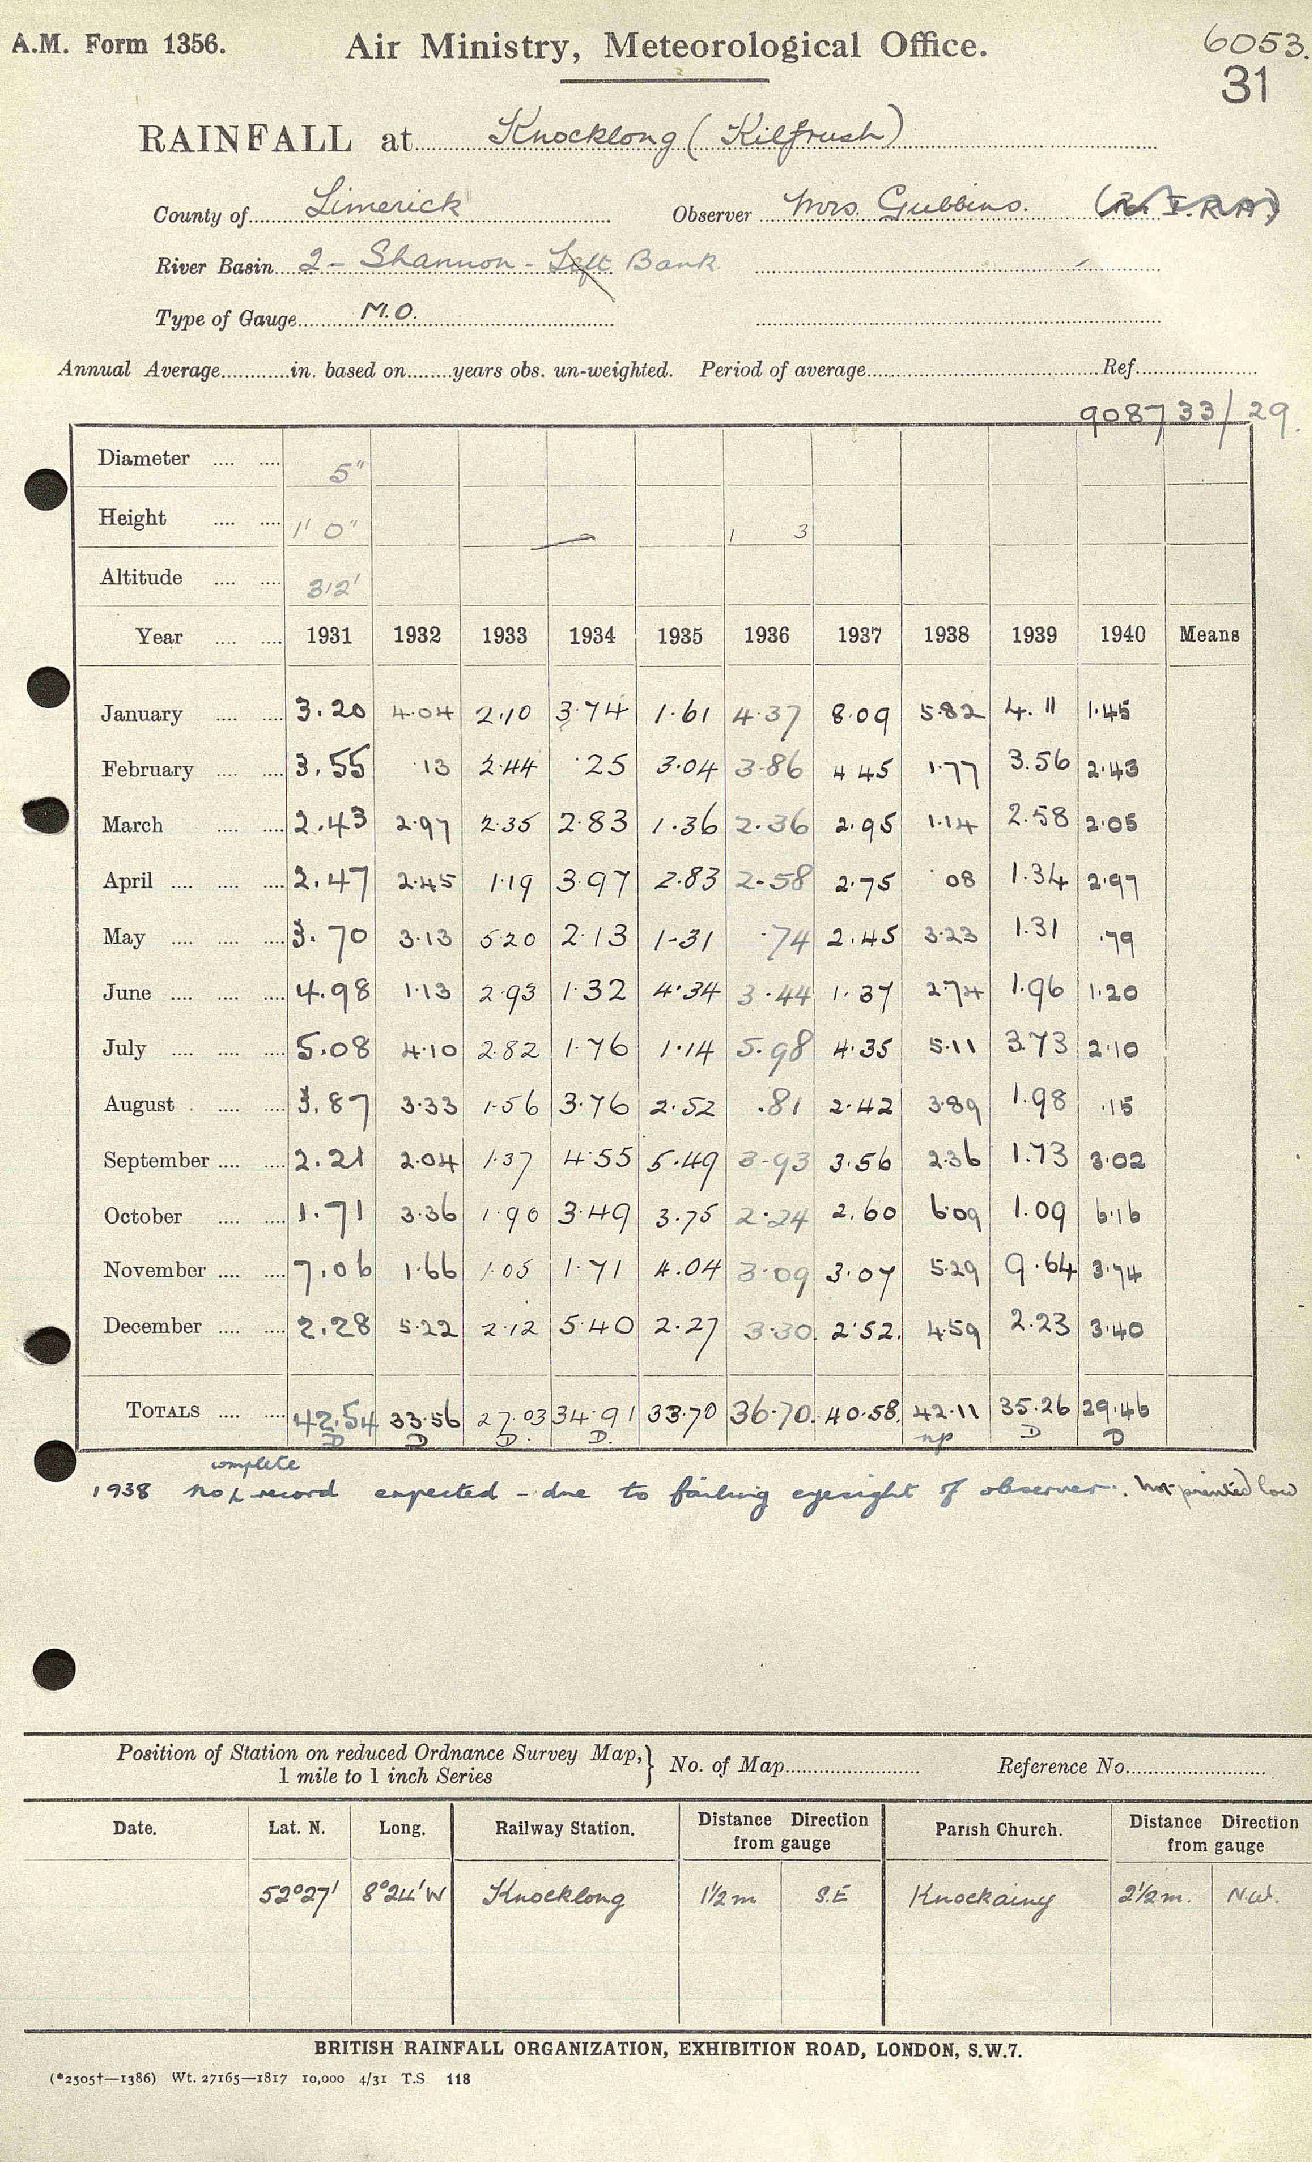 A.M. Form 1356. Air Ministry, Meteorological Office. 6053.
31
RAINFALL at Knocklong (Kilfrush)
County of Limerick Observer Mrs. Gubbins.
River Basin 2 - Shannon - Left Bank
Type of Gauge M.O.
Annual Average in. based on years obs. un-weighted. Period of average Ref.
908733/29.
Diameter 5"
Height 1' 0" 1 3
Altitude 312'
Year 1931 1932 1933 1934 1935 1936 1937 1938 1939 1940 Means
January 3.20 4.04 2.10 3.74 1.61 4.37 8.09 5.82 4.11 1.45
February 3.55 .13 2.44 .25 3.04 3.86 4 45 1.77 3.56 2.43
March 2.43 2.97 2.35 2.83 1.36 2.36 2.95 1.14 2.58 2.05
April 2.47 2.45 1.19 3.97 2.83 2.58 2.75 .08 1.34 2.97
May 3.70 3.13 5.20 2.13 1.31 .74 2.45 3.23 1.31 .79
June 4.98 1.13 2.93 1.32 4.34 3.44 1.37 2.74 1.96 1.20
July 5.08 4.10 2.82 1.76 1.14 5.98 4.35 5.11 3.73 2.10
August 3.87 3.33 1.56 3.76 2.52 .81 2.42 3.89 1.98 .15
September 2.21 2.04 1.37 4.55 5.49 3.93 3.56 2.36 1.73 3.02
October 1.71 3.36 1.90 3.49 3.75 2.24 2.60 6.09 1.09 6.16
November 7.06 1.66 1.05 1.71 4.04 3.09 3.07 5.29 9.64 3.74
December 2.28 5.22 2.12 5.40 2.27 3.30. 2.52. 4.59 2.23 3.40
TOTALS 42.54 33.56 27.03 34.91 33.70 36.70. 40.58. 42.11 35.26 29.46
D D D. D. np D D
complete
1938 no record expected - due to failing eyesight of observer. Not printed low
Position of Station on reduced Ordnance Survey Map, No. of Map Reference No.
1 mile to 1 inch Series
Date. Lat. N. Long. Railway Station. Distance Direction from gauge Parish Church. Distance Direction from gauge
52°27' 8°24'W Knocklong 1½m S.E Knockainy 2½m. N.W.
BRITISH RAINFALL ORGANIZATION, EXHIBITION ROAD, LONDON, S.W.7.
(*2505†—1386) Wt. 27165—1817 10,000 4/31 T.S 118